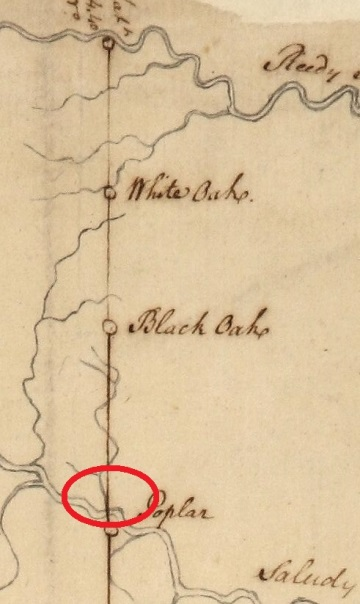 Reedy
White Oak.
Black Oak
Poplar
Saludy